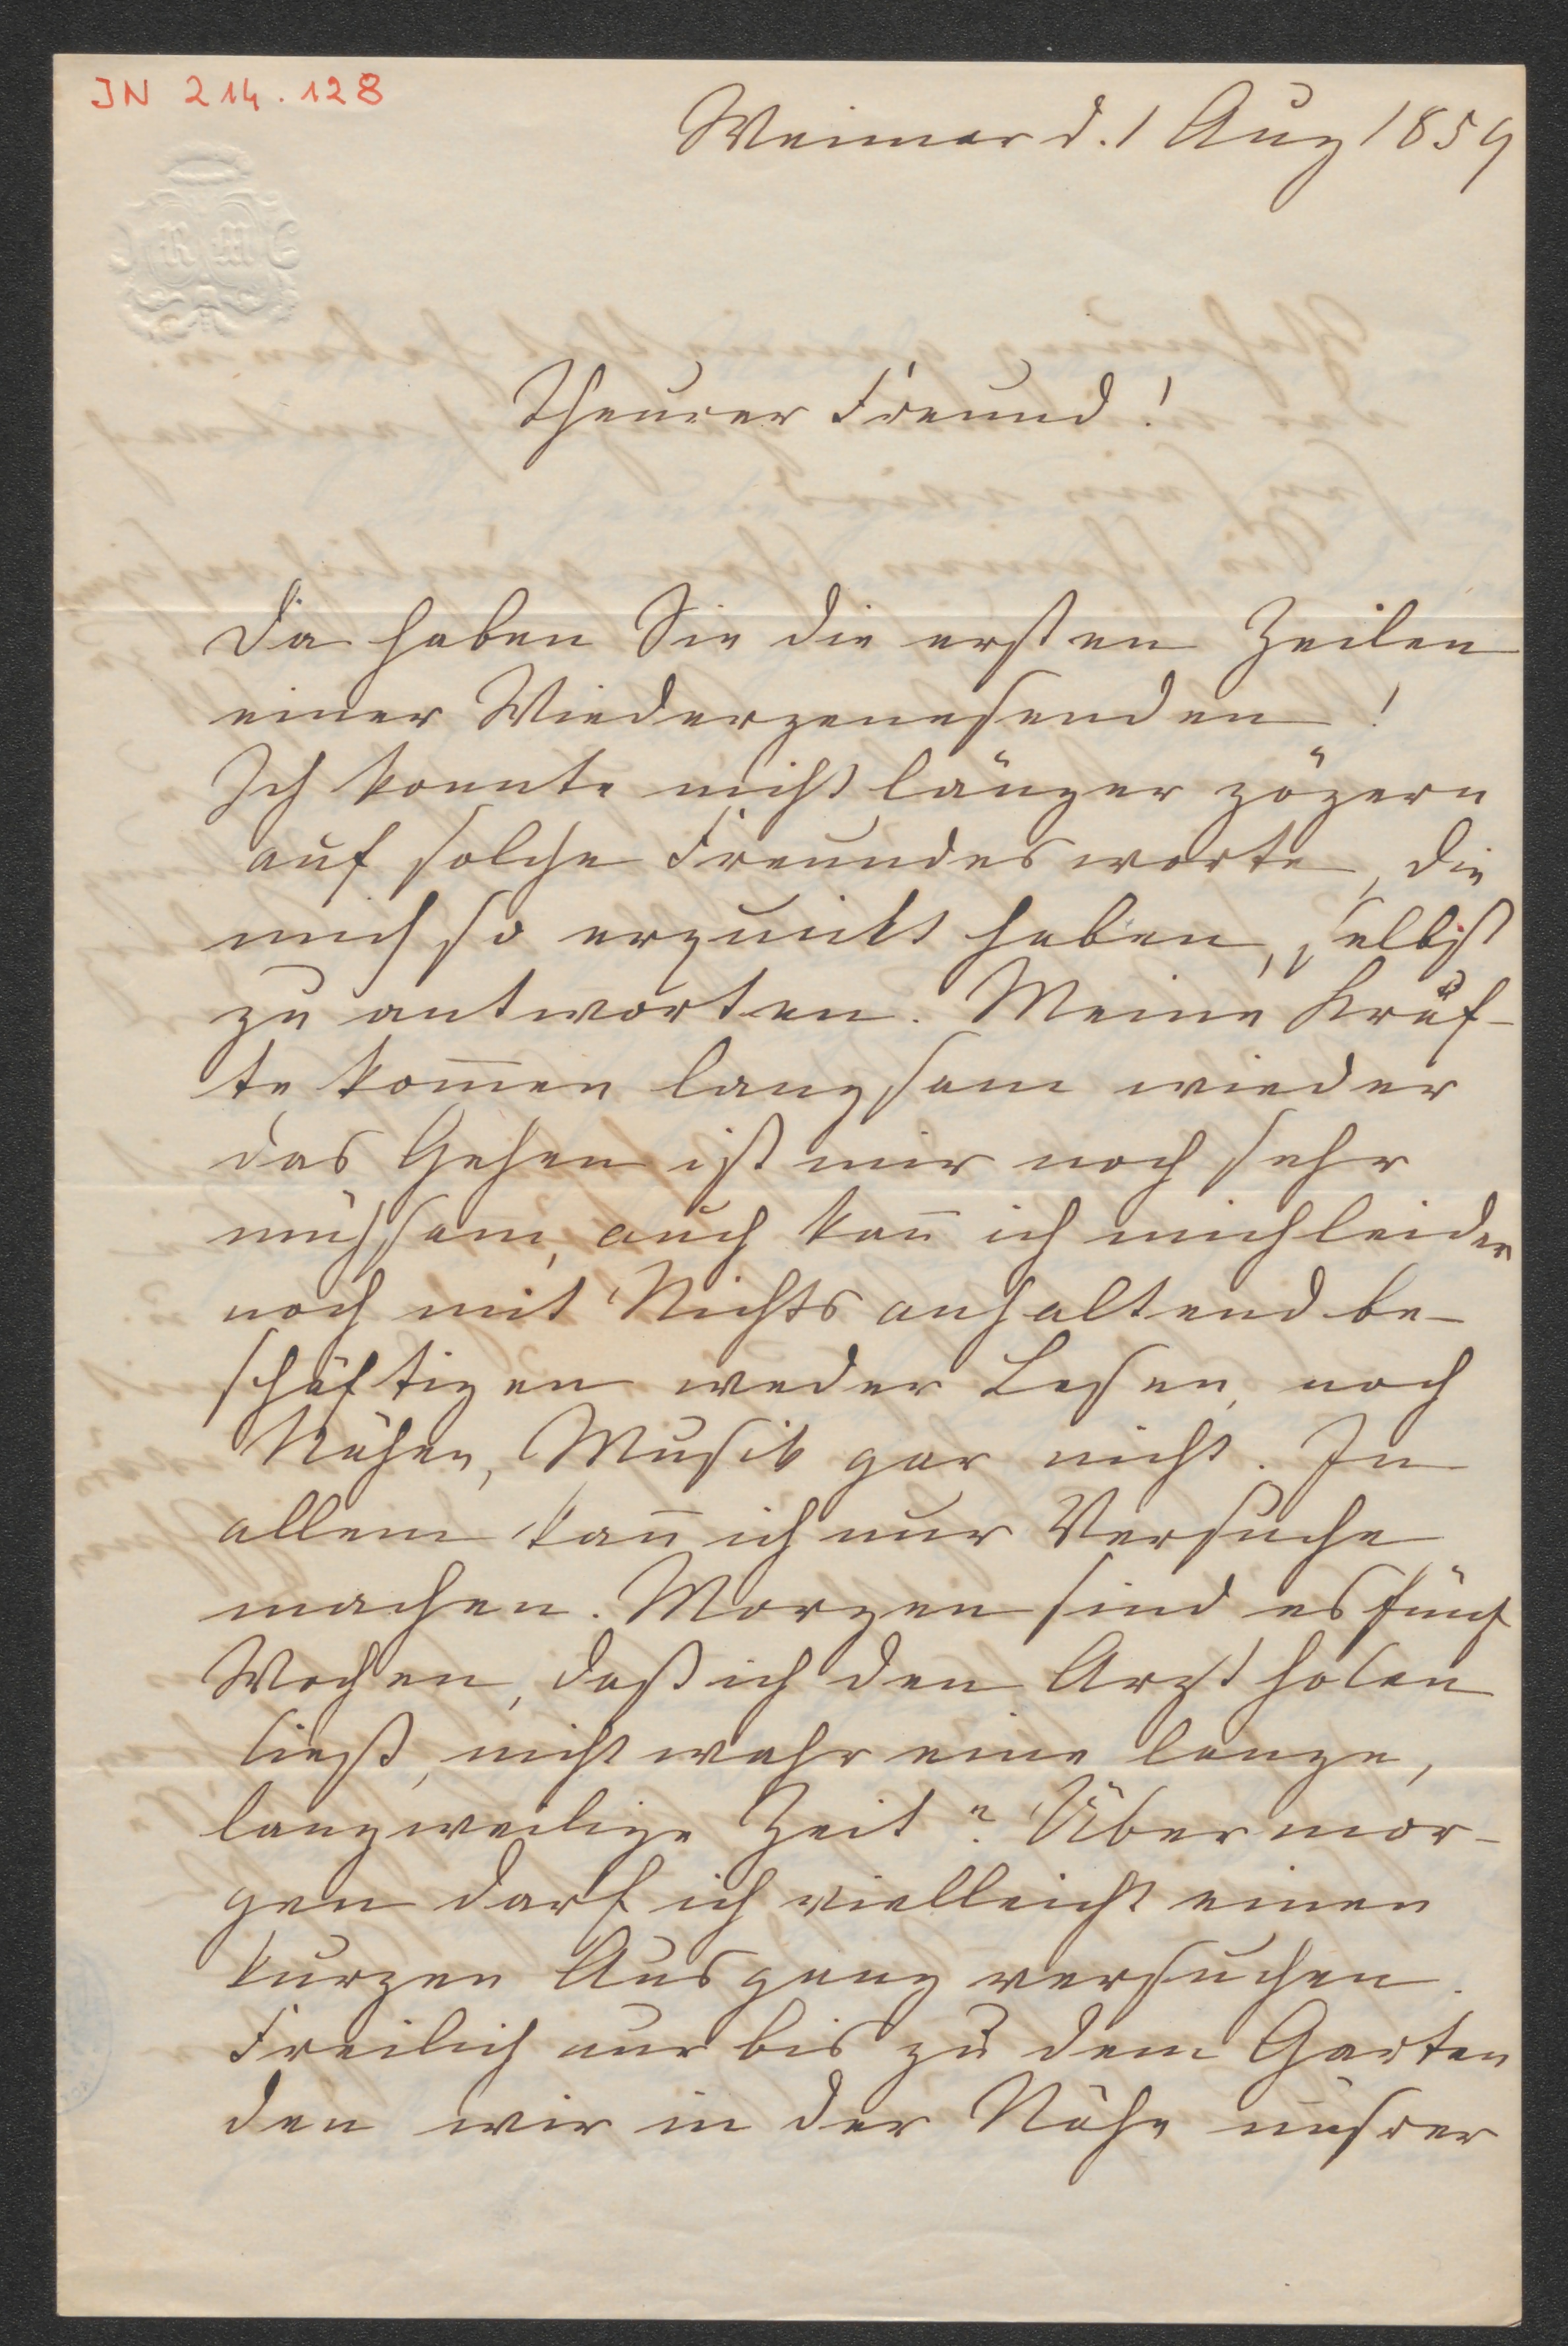 JN 214.128
Weimar d. 1 Aug 1859
R M
Theurer Freund!
Da haben Sie die ersten Zeilen
einer Wiedergenesenden!
Ich konnte nicht länger zögern
auf solche Freundesworte, die
mich so erquickt haben, selbst
zu antworten. Meine Kräf-
te kom̄en langsam wieder
das Gehen ist mir noch sehr
mühsam, auch kan̄ ich mich leider
noch mit Nichts anhaltend be-
schäftigen weder Lesen, noch
Nähen, Musik gar nicht. In
allem kan̄ ich nur Versuche
machen. Morgen sind es fünf
Wochen, daß ich den Arzt holen
ließ, nicht wahr eine lange,
langweilige Zeit? Übermor-
gen darf ich vielleicht einen
kurzen Ausgang versuchen.
Freilich nur bis zu dem Garten
den wir in der Nähe unsrer